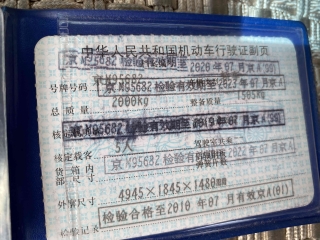 中华人民共和国机动车行驶证副页
京N95682 检验有效期至2020年07月京A
号牌号码 京N95682 检验有效期至2023年07月京A
总质量 2000kg 整备质量 1505kg
京N95682 检验有效期至2019年07月京A
核定载客 5人 驾驶室共乘
京N95682 检验有效期至2022年07月京A
货箱内部尺寸
外廓尺寸 4945×1845×1480
检验合格至2010年07月有效京A(01)
检验记录